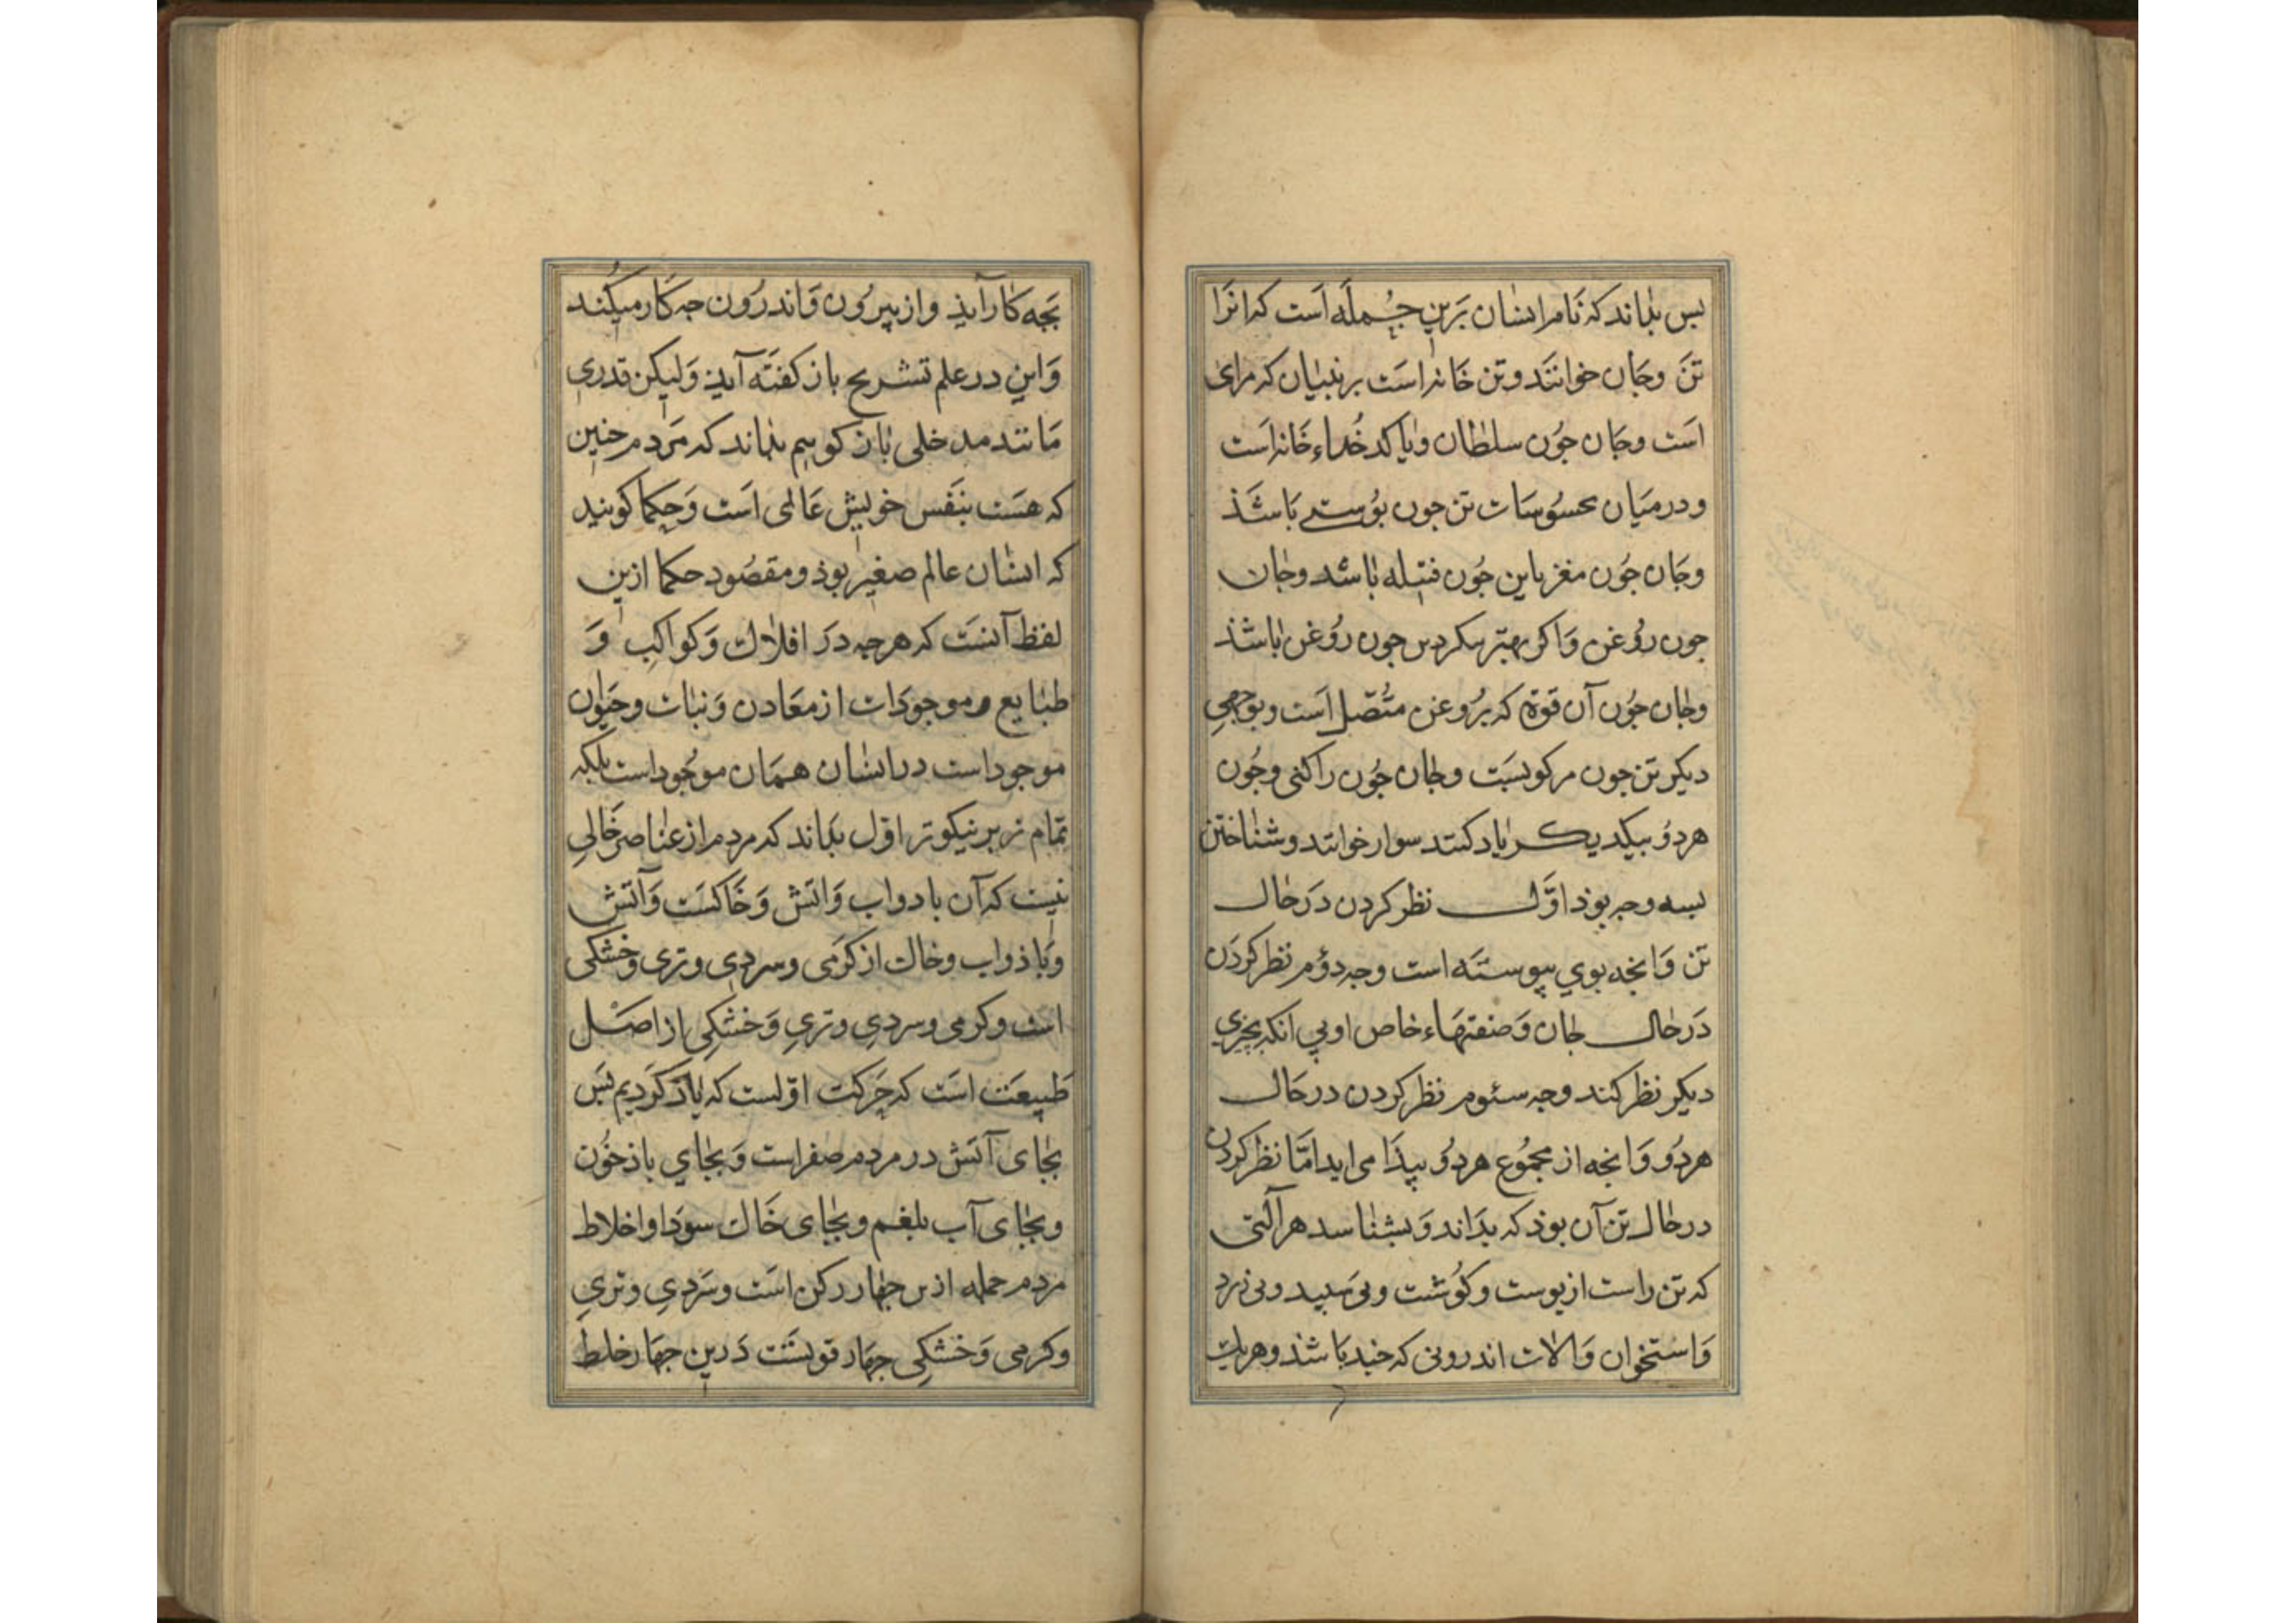 بس بداند که نام انسان برین جمله است که انرا
تن وجان خوانند وتن خانه است بر بنیان که مرای
است وجان جون سلطان ویا کدخداء خانه است
ودرمیان محسوسات تن جون بوستی باشذ
وجان جون مغز یا تن جون فتیله باشد وجان
جون روغن واکر بهتر بنکرد تن جون روغن باشذ
وجان جون آن قوة که بروغن متصل است وبوجهی
دیکر تن جون مرکوبست وجان جون راکبی وجون
هردو بیکدیکر یاد کنند سوار خوانند وشناختن
بسه وجه بوذ اول نظر کردن در حال
تن وانجه بوی پیوسته است وجه دوم نظر کردن
در حال جان وصفتهاء خاص او بی انکه بچیزی
دیکر نظر کنند وجه سئوم نظر کردن در حال
هردو وانجه از مجموع هردو پیذا می اید اما نظر کردن
در حال تن آن بوذ که بداند وبشناسد هر آلتی
که تن راست از پوست وکوشت وپی سپید وپی زرد
واستخوان والات اندرونی که جند باشذ وهریک
بچه کار آید واز بیرون واندرون جه کار میکند
واین در علم تشریح باز کفته آید ولیکن قدری
مانند مدخلی باز کوییم بداند که مردم جنین
که هست بنفس خویش عالمی است وحکما کویند
که انسان عالم صغیر بوذ ومقصود حکما ازین
لفظ آنست که هرجه در افلاک وکواکب و
طبایع وموجودات از معادن ونبات وحیوان
موجود است در انسان همان موجود است بلکه
تمام تر برنیکوتر اول بداند که مردم از عناصر خالی
نیست که آن باد واب واتش وخاکست وآتش
وباذ واب وخاک از کرمی وسردی وتری وخشکی
است وکرمی وسردی وتری وخشکی از اصل
طبیعت است که حرکت اولست که یاذ کردیم بس
بجای آتش در مردم صفراست وبجای باذ خون
وبجای آب بلغم وبجای خاک سودا واخلاط
مردم جمله ازین جهار رکن است وسردی وتری
وکرمی وخشکی جهار قوتست درین جهار خلط